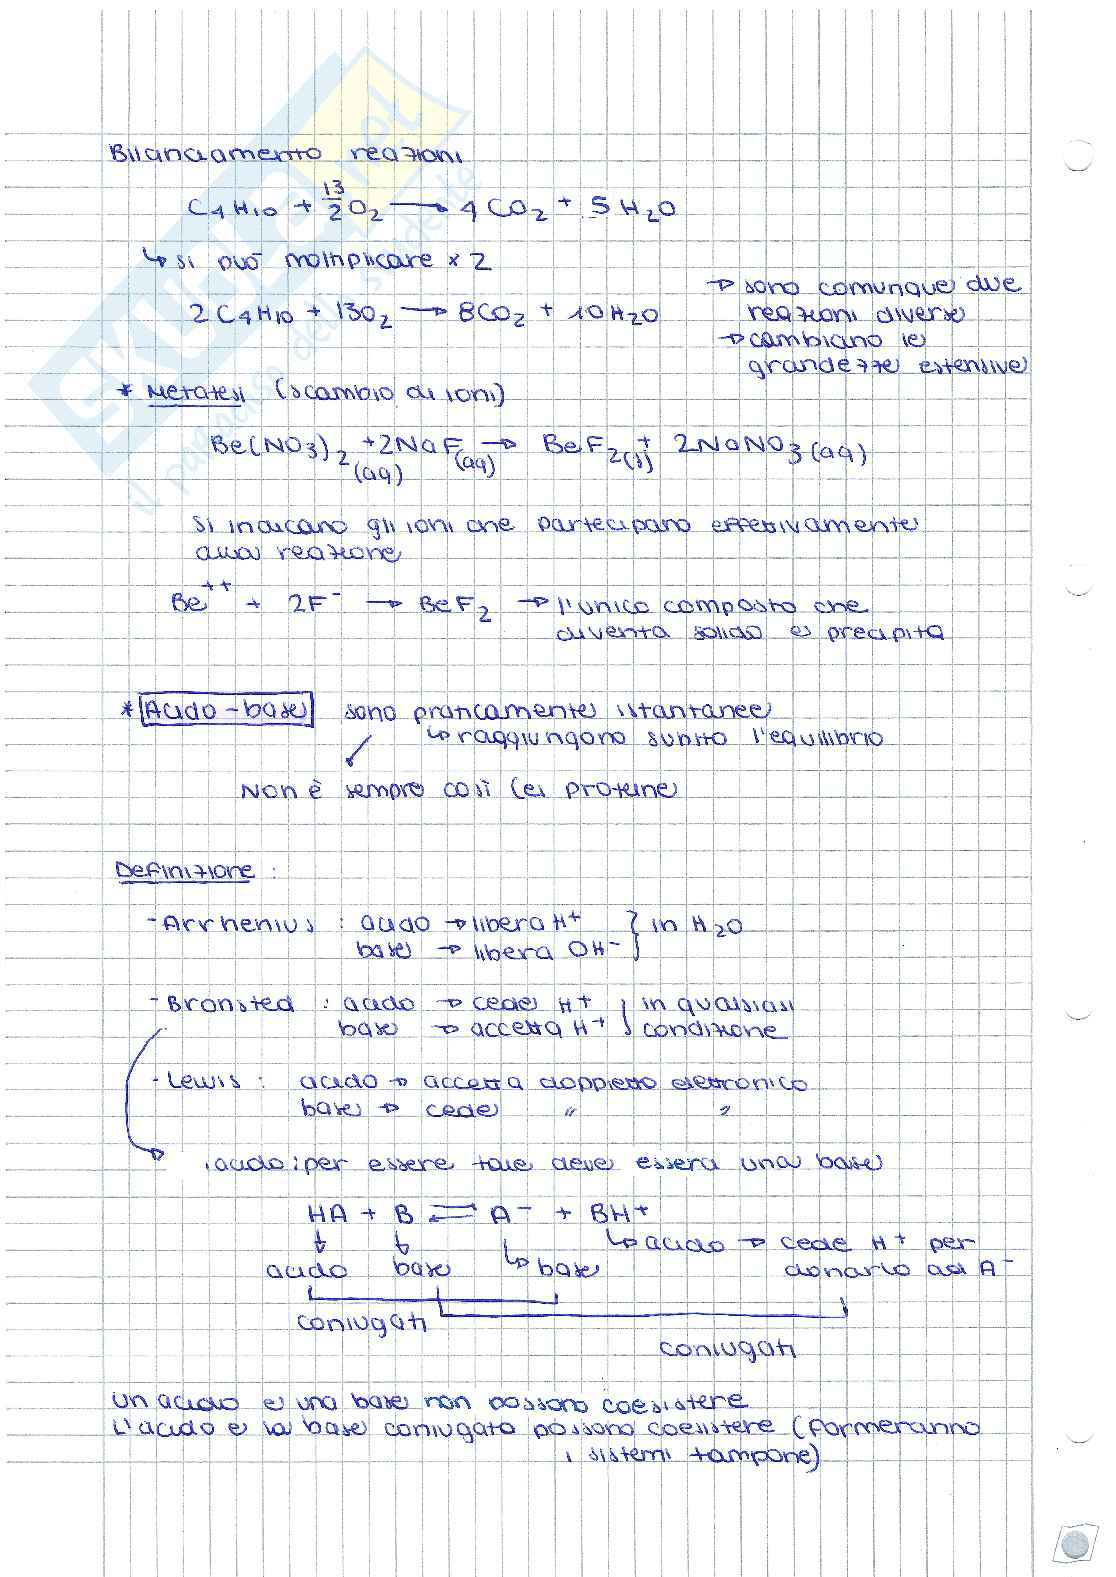 Bilanciamento reazioni
C4H10 + 13/2 O2 → 4 CO2 + 5 H2O
↳ si può moltiplicare × 2
2 C4H10 + 13O2 → 8CO2 + 10H2O
→ sono comunque due
reazioni diverse
→ cambiano le
grandezze estensive
* Metatesi (scambio di ioni)
Be(NO3)2 (aq) + 2NaF (aq) → BeF2(s) + 2NaNO3 (aq)
Si indicano gli ioni che partecipano effettivamente
alla reazione
Be++ + 2F- → BeF2 → l'unico composto che
diventa solido e precipita
* Acido-base sono praticamente istantanee
↳ raggiungono subito l'equilibrio
Non è sempre così (es proteine
Definizione :
- Arrhenius : acido → libera H+ } in H2O
base → libera OH-
- Bronsted : acido → cede H+ } in qualsiasi
base → accetta H+ condizione
- Lewis : acido → accetta doppietto elettronico
base → cede " "
acido : per essere tale deve esserci una base
HA + B ⇌ A- + BH+
↳ acido → cede H+ per
donarlo ad A-
acido base ↳ base
coniugati
coniugati
un acido e una base non possono coesistere
L'acido e la base coniugata possono coesistere (formeranno
i sistemi tampone)
SKUOLA.net
il paradiso dello studente